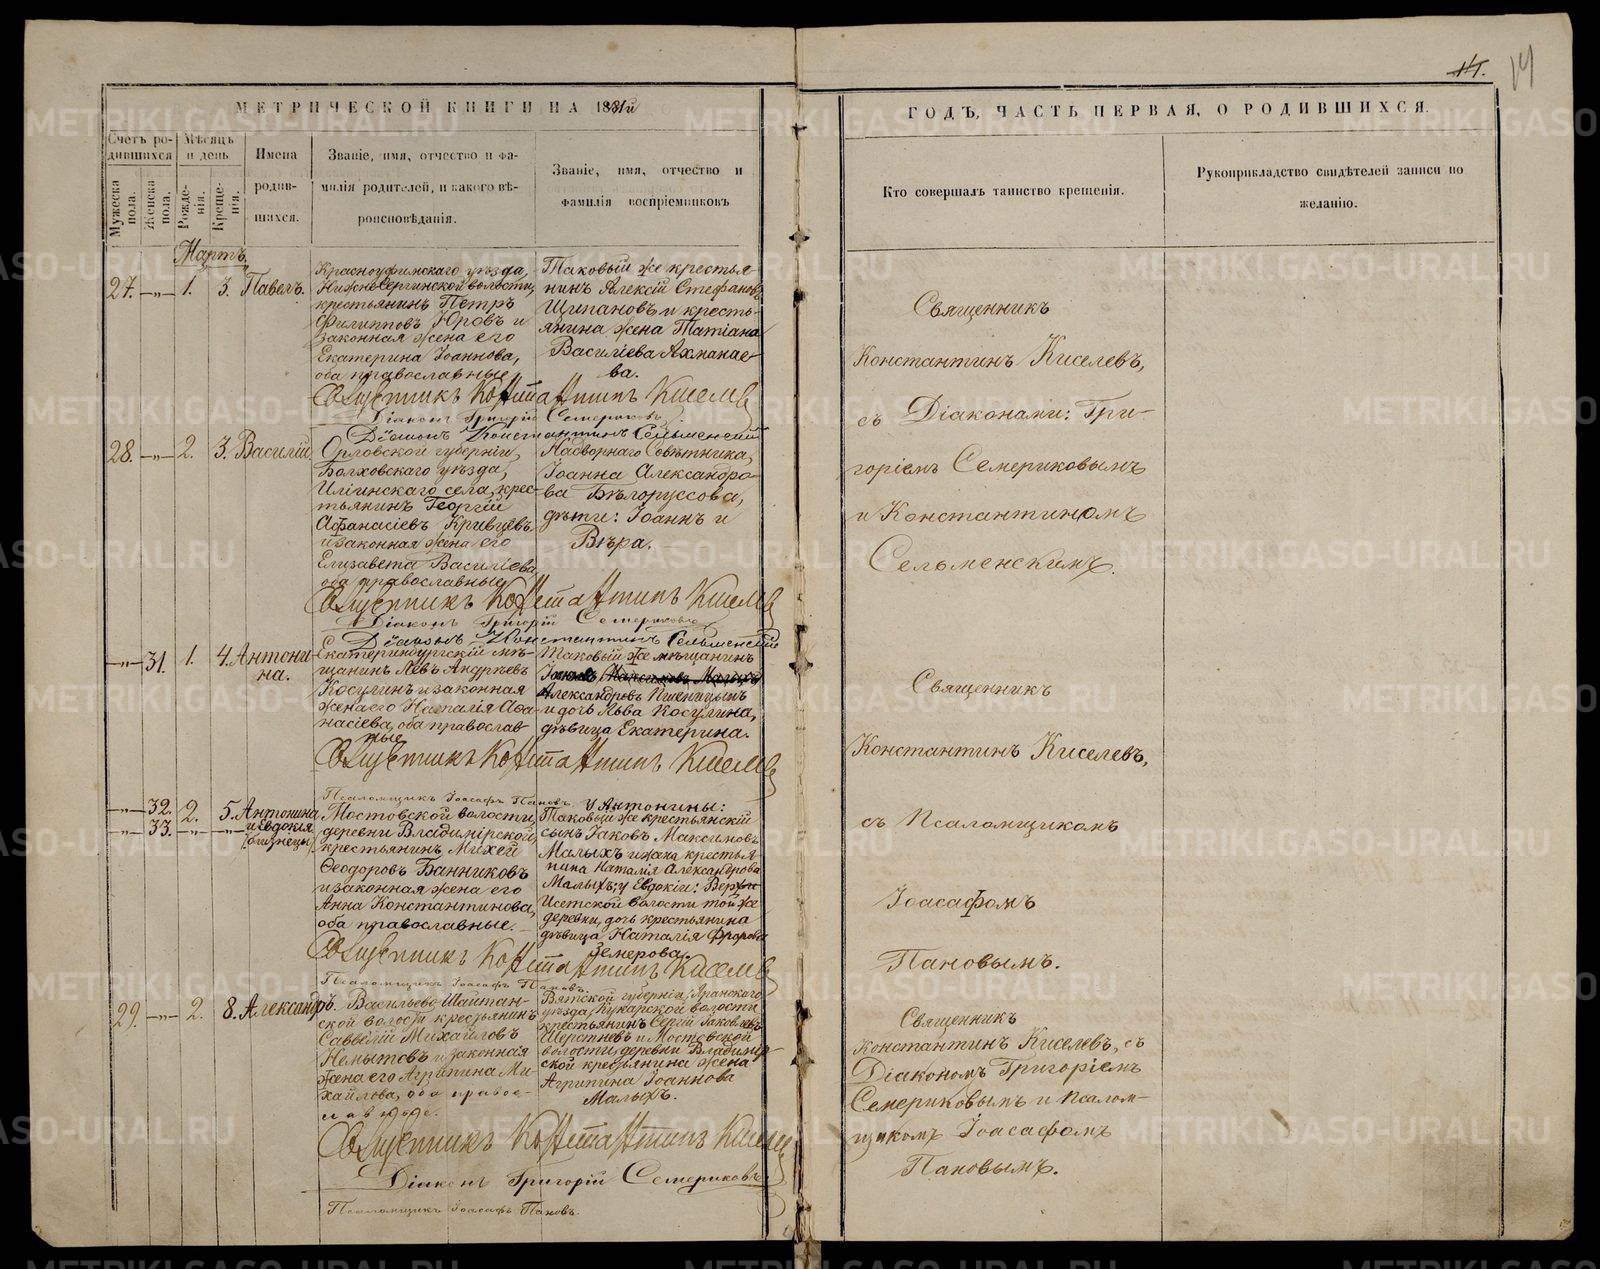 14. 14
МЕТРИЧЕСКОЙ КНИГИ НА 1881й
ГОДЪ, ЧАСТЬ ПЕРВАЯ, О РОДИВШИХСЯ.
Счетъ ро-
дившихся
Мужеска
пола.
Женска
пола.
Мѣсяцъ
и день
Рожде-
нія.
Креще-
нія.
Имена
родив-
шихся.
Званіе, имя, отчество и фа-
милія родителей, и какого вѣ-
роисповѣданія.
Званіе, имя, отчество и
фамилія воспріемниковъ
Кто совершалъ таинство крещенія.
Рукоприкладство свидѣтелей записи по
желанію.
Мартъ
27. —„— 1. 3. Павелъ.
Красноуфимскаго уѣзда,
Нижнесергинской волости,
крестьянинъ Петръ
Филипповъ Юровъ и
законная жена его
Екатерина Іоаннова,
оба православные.
Таковый же крестья-
нинъ Алексій Стефановъ
Щипановъ и кресть-
янина жена Татіана
Василіева Ахманае-
ва.
Священникъ Константинъ Киселевъ
Діаконъ Григорій Семериковъ
Діаконъ Константинъ Сельменскій
Священникъ
Константинъ Киселевъ,
съ Діаконами: Гри-
горіемъ Семериковымъ
и Константиномъ
Сельменскимъ.
28. —„— 2. 3. Василій
Орловской губерніи,
Болховскаго уѣзда,
Иліинскаго села, крес-
тьянинъ Георгій
Афанасіевъ Кривцевъ
и законная жена его
Елизавета Василіева,
оба православные
Надворнаго Совѣтника,
Іоанна Александро-
ва Бѣлоруссова,
дѣти: Іоаннъ и
Вѣра.
Священникъ Константинъ Киселевъ
Діаконъ Григорій Семериковъ
Діаконъ Константинъ Сельменскій
—„— 31. 1. 4. Антони-
на.
Екатеринбургскій мѣ-
щанинъ Левъ Андреевъ
Косулинъ и законная
жена его Наталія Афа-
насіева, оба православ-
ные
Таковый же мѣщанинъ
Александровъ Пшеницынъ
и дочь Льва Косулина,
дѣвица Екатерина.
Священникъ Константинъ Киселевъ
Псаломщикъ Іоасафъ Пановъ
Священникъ
Константинъ Киселевъ,
съ Псаломщикомъ
Іоасафомъ
Пановымъ.
—„— 32. 2. 5. Антонина
—„— 33. —„— —„— и Евдокія
(близнецы)
Мостовской волости,
деревни Владимірской,
крестьянинъ Михей
Феодоровъ Банниковъ
и законная жена его
Анна Константинова,
оба православные.
У Антонины:
Таковый же крестьянскій
сынъ Іаковъ Максимовъ
Малыхъ и жена крестья-
нина Наталія Александрова
Малыхъ; у Евдокіи: Верхъ-
Исетской волости той же
деревни, дочь крестьянина
дѣвица Наталія Фролова
Земерова.
Священникъ Константинъ Киселевъ
Псаломщикъ Іоасафъ Пановъ.
29. —„— 2. 8. Александръ.
Васильево-Шайтан-
ской волости крестьянинъ
Савватій Михайловъ
Немытовъ и законная
жена его Агрипина Ми-
хайлова, оба правос-
лавные.
Вятской губерніи, Яранскаго
уѣзда, Кукарской волости
крестьянинъ Сергій Іаковлевъ
Шерстневъ и Мостовской
волости, деревни Владимір-
ской крестьянина жена
Агрипина Іоаннова
Малыхъ.
Священникъ Константинъ Киселевъ
Діаконъ Григорій Семериковъ
Псаломщикъ Іоасафъ Пановъ.
Священникъ
Константинъ Киселевъ, съ
Діакономъ Григоріемъ
Семериковымъ и Псалом-
щикомъ Іоасафомъ
Пановымъ.
METRIKI.GASO-URAL.RU